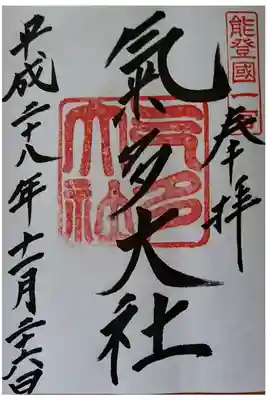 能登國一
奉拝
氣多大社
氣多大社
平成二十八年十一月二十六日